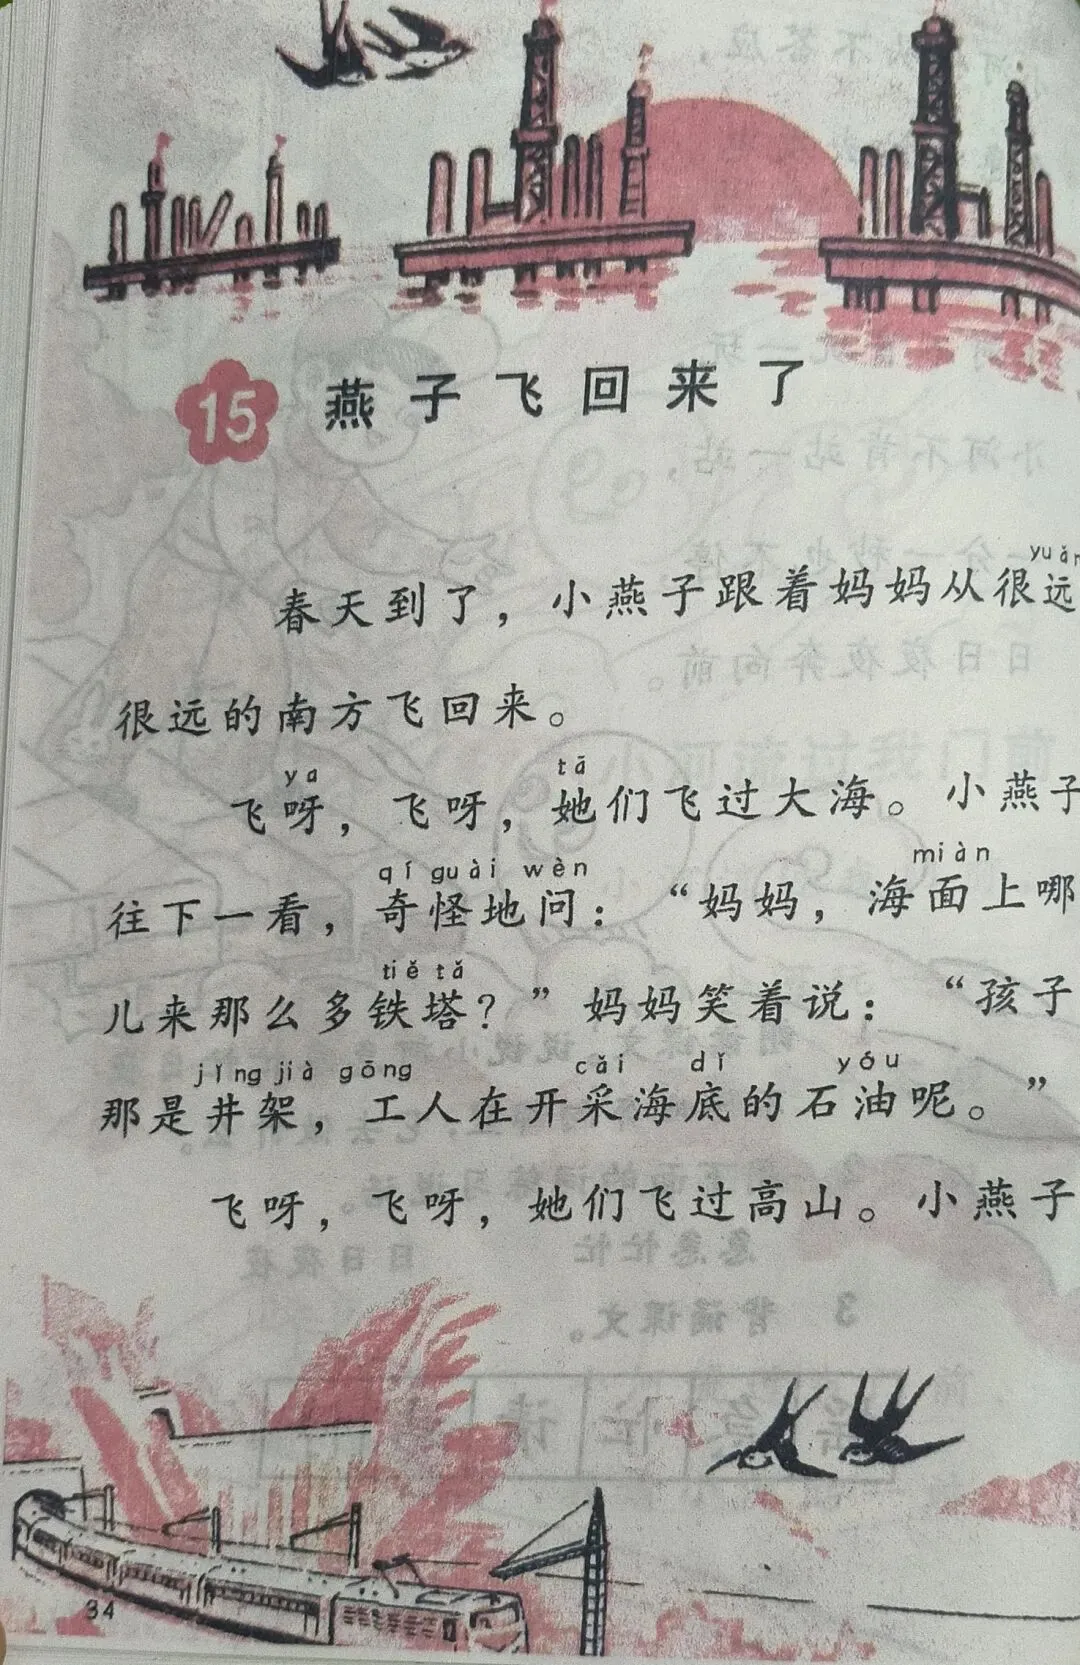 15 燕子飞回来了
yuǎn
春天到了，小燕子跟着妈妈从很远
很远的南方飞回来。
ya tā
飞呀，飞呀，她们飞过大海。小燕子
qí guài wèn miàn
往下一看，奇怪地问：“妈妈，海面上哪
tiě tǎ
儿来那么多铁塔？”妈妈笑着说：“孩子
jǐng jià gōng cǎi dǐ yóu
那是井架，工人在开采海底的石油呢。”
飞呀，飞呀，她们飞过高山。小燕子
34